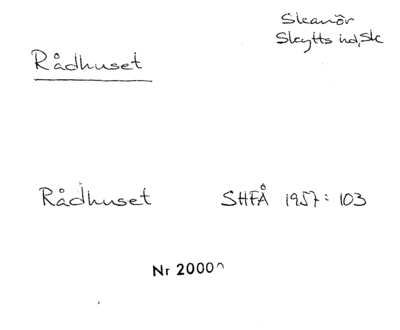 Skanör
Skytts hd, Sk
Rådhuset
Rådhuset SHFÅ 1957: 103
Nr 20000